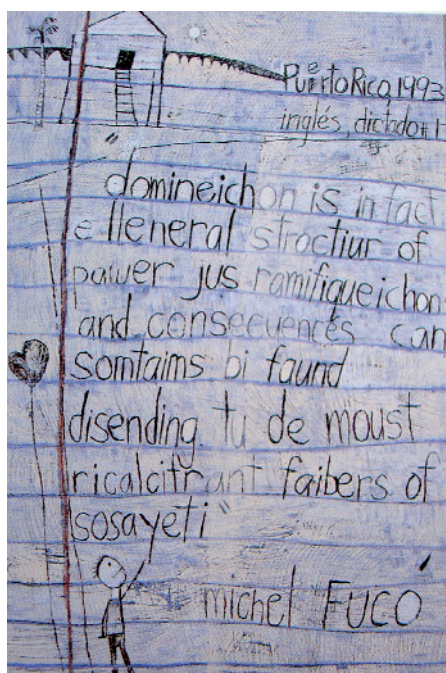 Puerto Rico, 1993
inglés, dictado #1
"domineichon is in fact
e lleneral stroctiur of
pawer jus ramifiqueichon
and consecuences can
somtaims bi faund
disending tu de moust
ricalcitrant faibers of
sosayeti"
michel FUCÓ